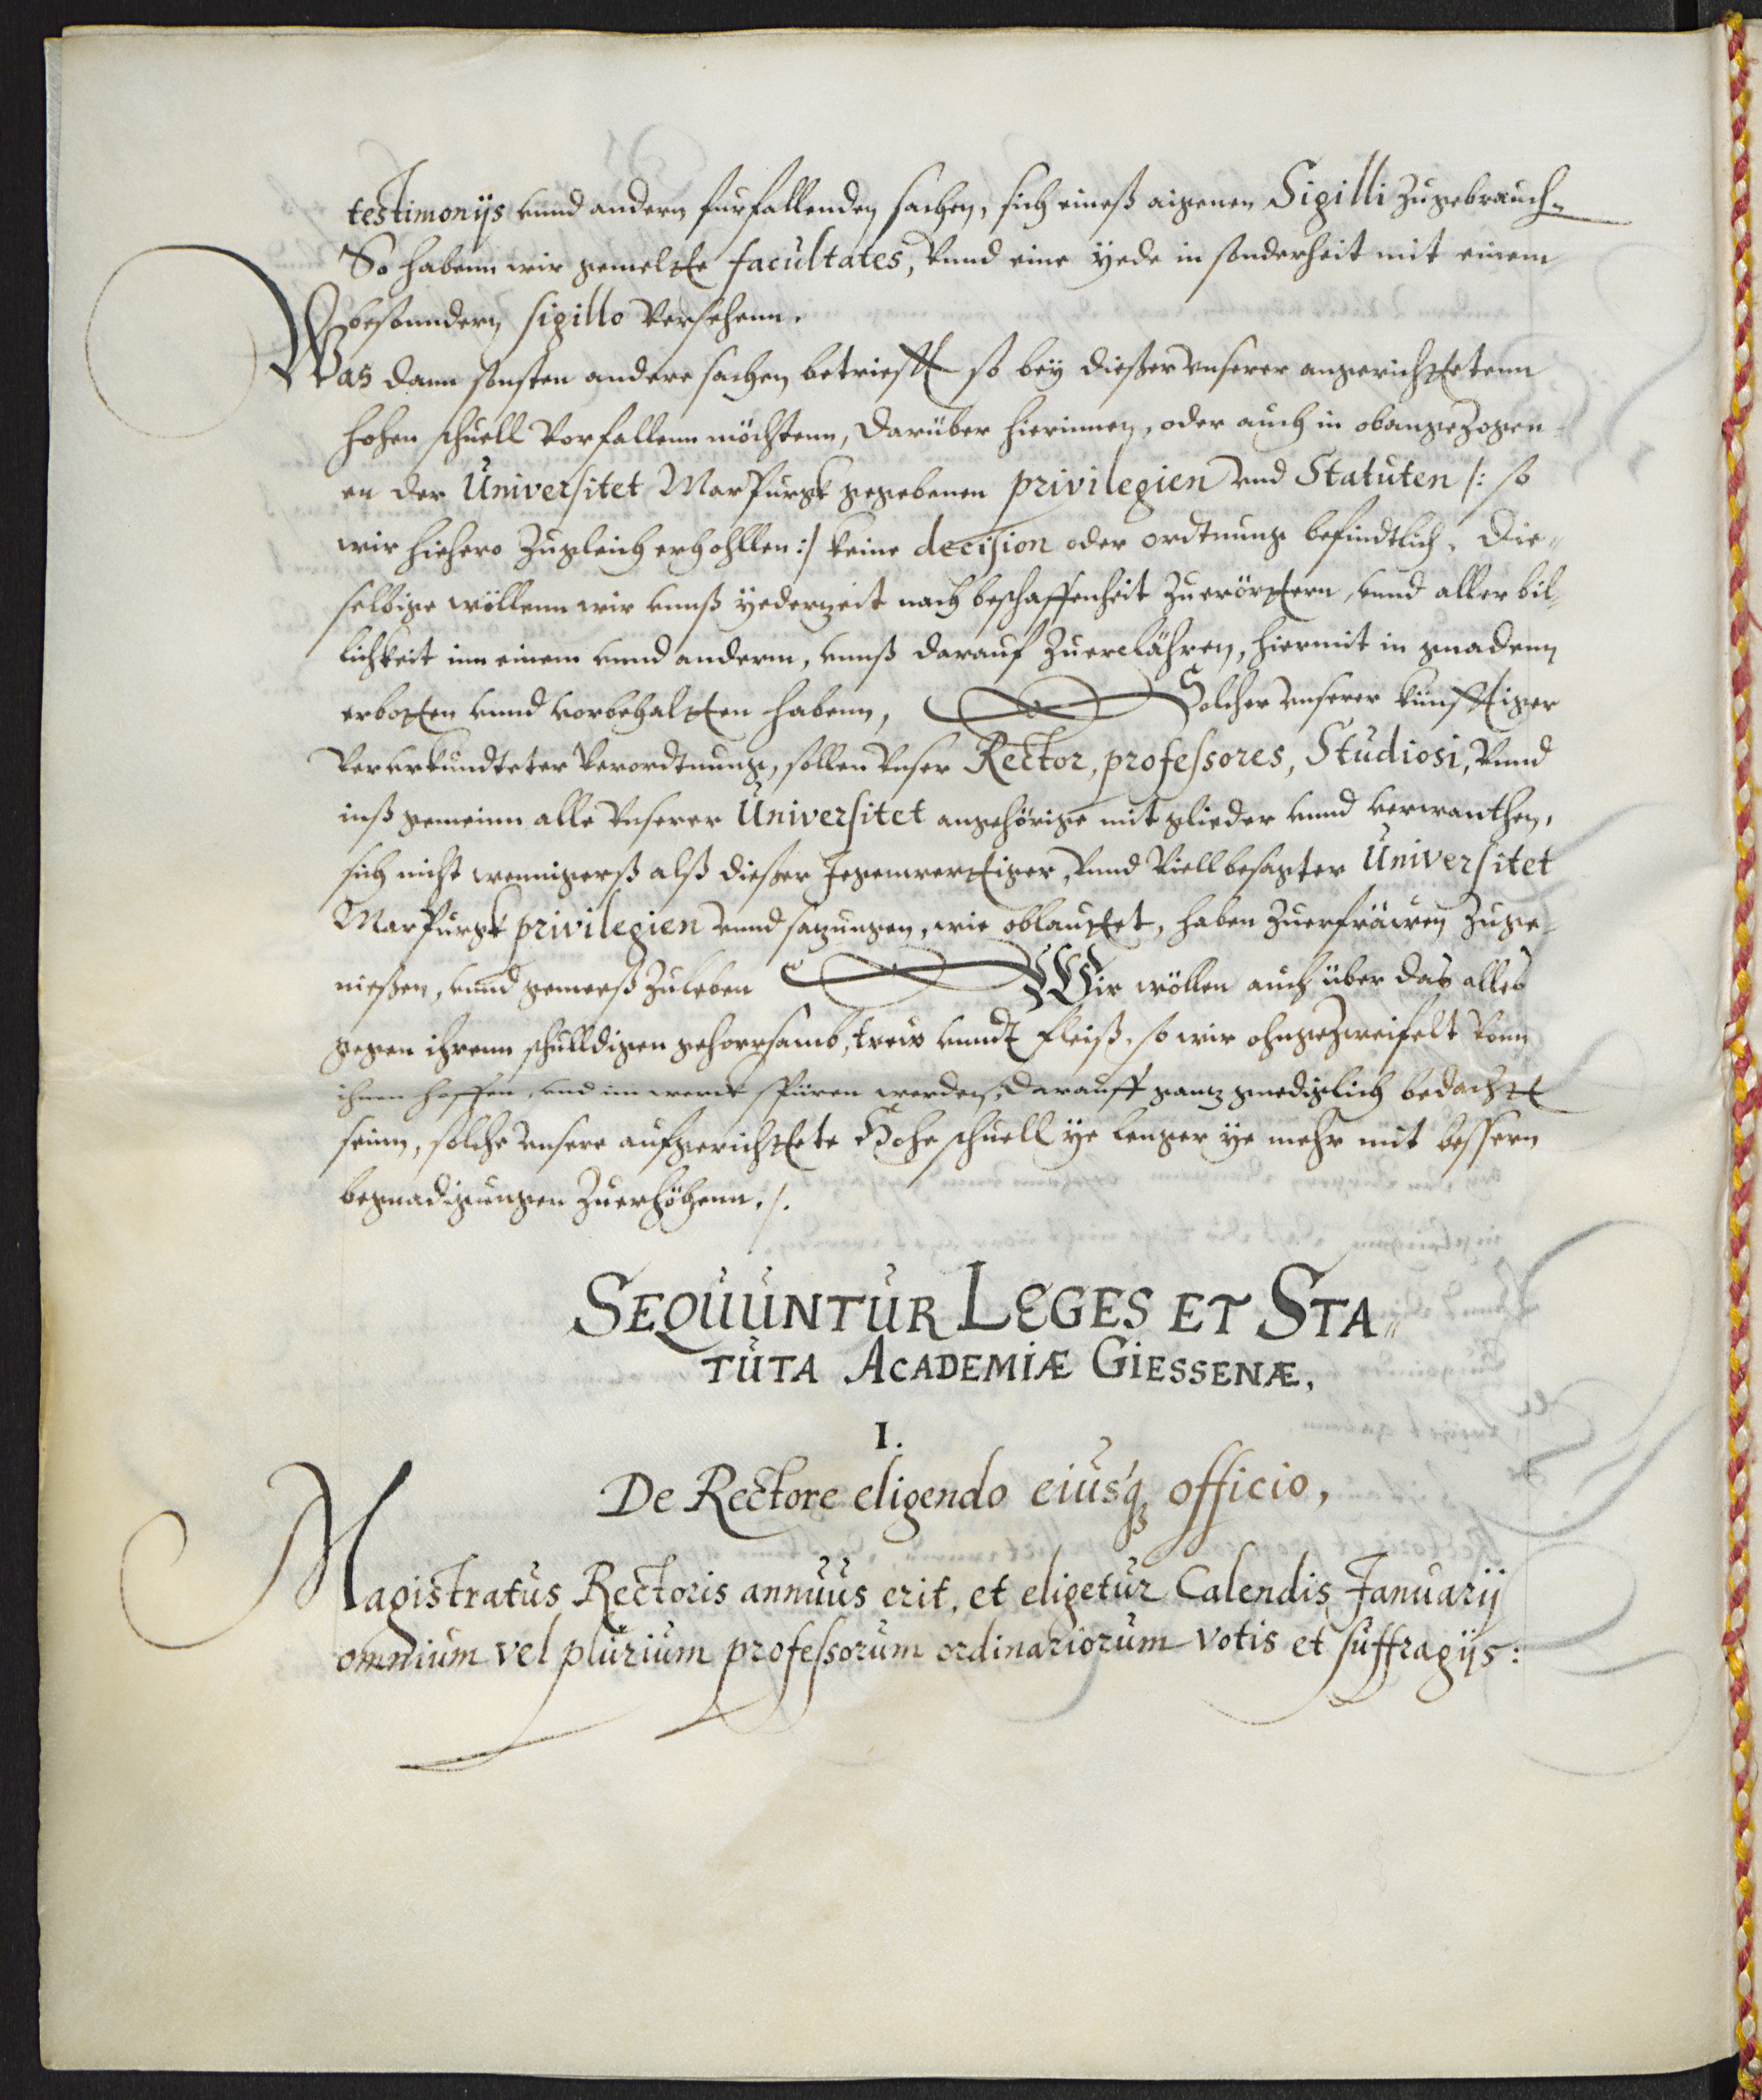 testimonijs vnnd andern furfallenden sachen, sich eineß aigenen Sigilli zugebrauch-
So habenn wir gemeltte facultates, vnnd eine yede in sonderheit mit einem
besonndern sigillo versehenn.
Was dann sonsten andere sachen betriefft so bey dießer vnserer angerichttetenn
hohen schuell vorfallenn möchtenn, darüber hierinnen, oder auch in obangezogen-
en der Universitet Marpurgk gegebenen privilegien vnd Statuten /: so
wir hiehero zugleich erhohllen :/ keine decision oder ordtnung befindtlich. Die„
selbige wöllenn wir vnnß yederzeit nach beschaffenheit zuerörttern, vnnd aller bil-
lichkeit inn einem vnnd anderm, vnnß darauf zuerclähren, hiermit in gnadenn
erbotten vnnd vorbehaltten habenn, Solcher vnserer künfftiger
ververkundteter verordtnung, sollen vnser Rector, professores, Studiosi, vnnd
inß gemeinn alle vnserer Universitet angehörige mitglieder vnnd verwanthen,
sich nicht wenigerß alß dießer Jegenwerttiger, vnnd viellbesagter Universitet
Marpurgk privilegien vnnd satzungen, wie oblauttet, haben zuerfräwen zuge-
nießen, vnnd gemeeß zuleben Wir wöllen auch über das alles
gegen ihrenn schulldigen gehorrsamb, trew vnndt fleiß, so wir ohngezweifelt vonn
ihnen hoffen, vnd im werck spüren werden, darauff gantz gnediglich bedachtt
seinn, solche vnsere aufgerichttete Hohe schuell ye lenger ye mehr mit bessern
begnadigungen zuerhöhenn. /.
SEQUUNTUR LEGES ET STA„
TUTA ACADEMIÆ GIESSENÆ.
I.
De Rectore eligendo eiusq; officio,
Magistratus Rectoris annuus erit, et eligetur Calendis Januarij
omnium vel plurium professorum ordinariorum votis et suffragijs: